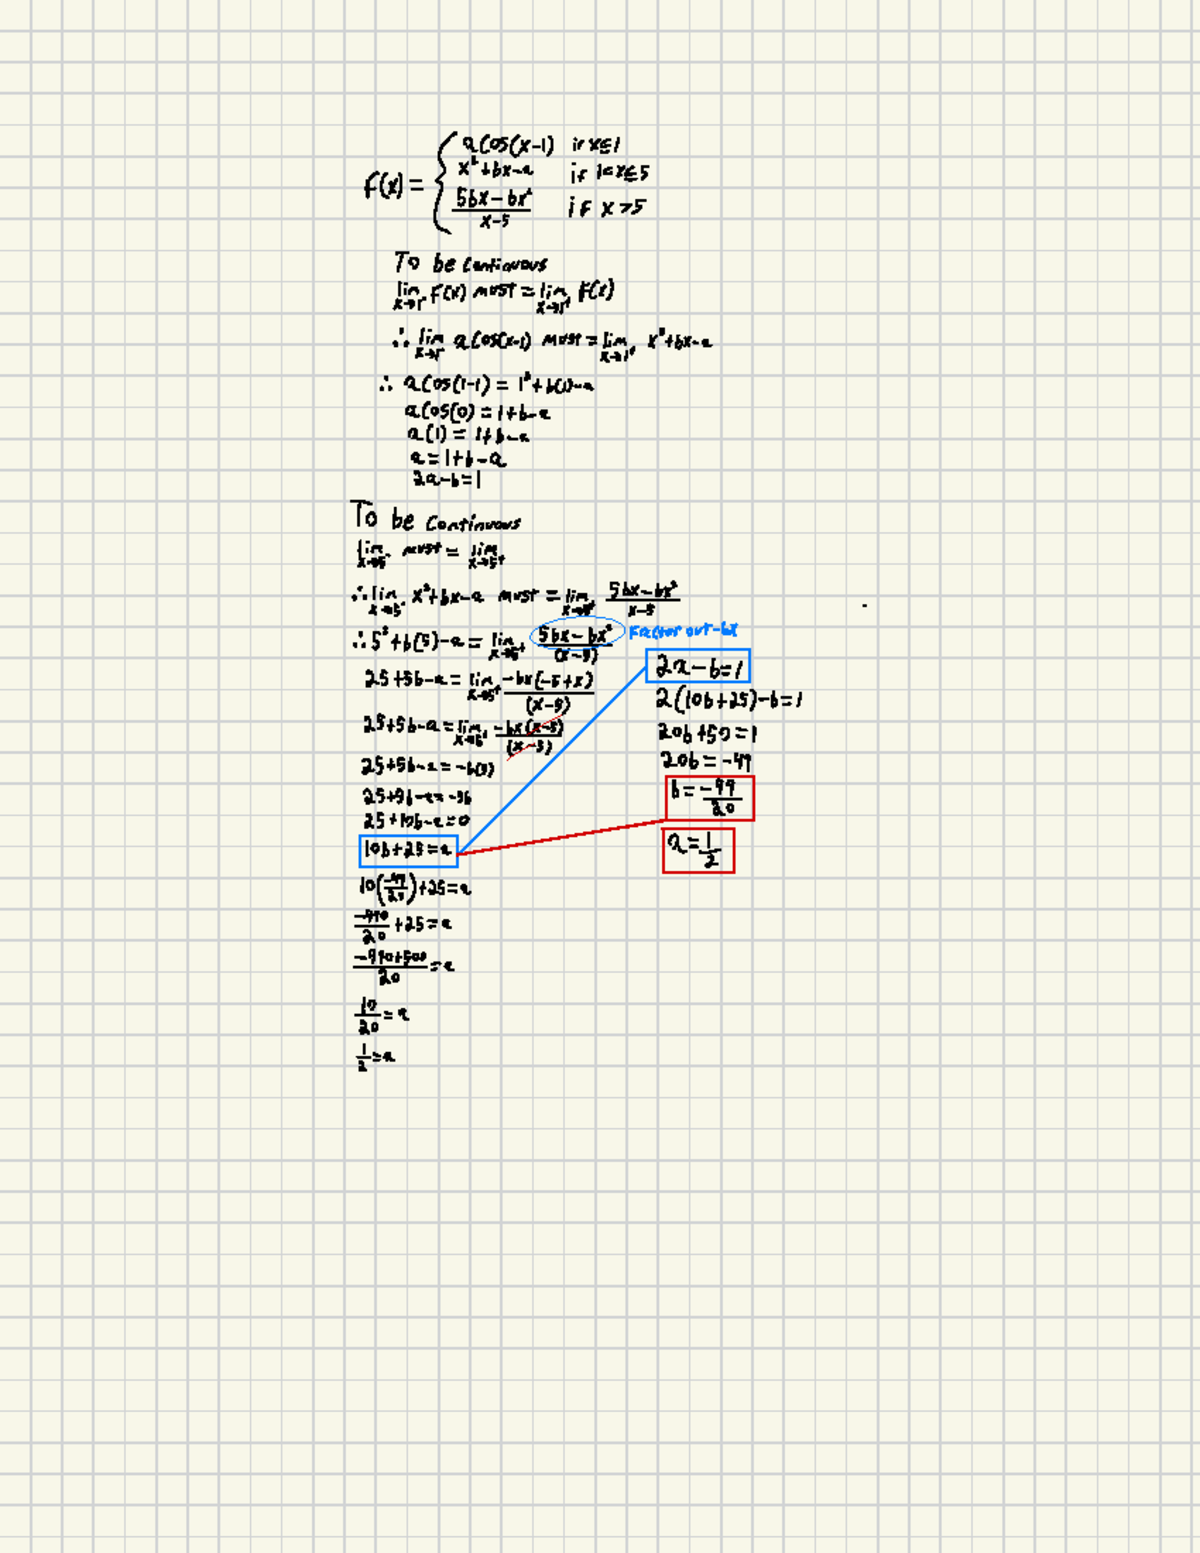 F(x) = { a cos(x-1) if x≤1
x²+bx-a if 1<x≤5
5bx-bx²/x-5 if x>5
To be continuous
lim x→1⁻ F(x) must = lim x→1⁺ F(x)
∴ lim x→1⁻ a cos(x-1) must = lim x→1⁺ x²+bx-a
∴ a cos(1-1) = 1²+b(1)-a
a cos(0) = 1+b-a
a(1) = 1+b-a
a = 1+b-a
2a-b=1
To be continuous
lim x→5⁻ must = lim x→5⁺
∴ lim x→5⁻ x²+bx-a must = lim x→5⁺ 5bx-bx²/x-5
∴ 5²+b(5)-a = lim x→5⁺ 5bx-bx²/(x-5) Factor out -bx
25+5b-a = lim x→5⁺ -bx(-5+x)/(x-5)
25+5b-a = lim x→5⁺ -bx(x-5)/(x-5)
25+5b-a = -b(5)
25+5b-a = -5b
25+10b-a=0
10b+25=a
10(-49/20)+25=a
-490/20+25=a
-490+500/20=a
10/20=a
1/2=a
2a-b=1
2(10b+25)-b=1
20b+50=1
20b=-49
b=-49/20
a=1/2